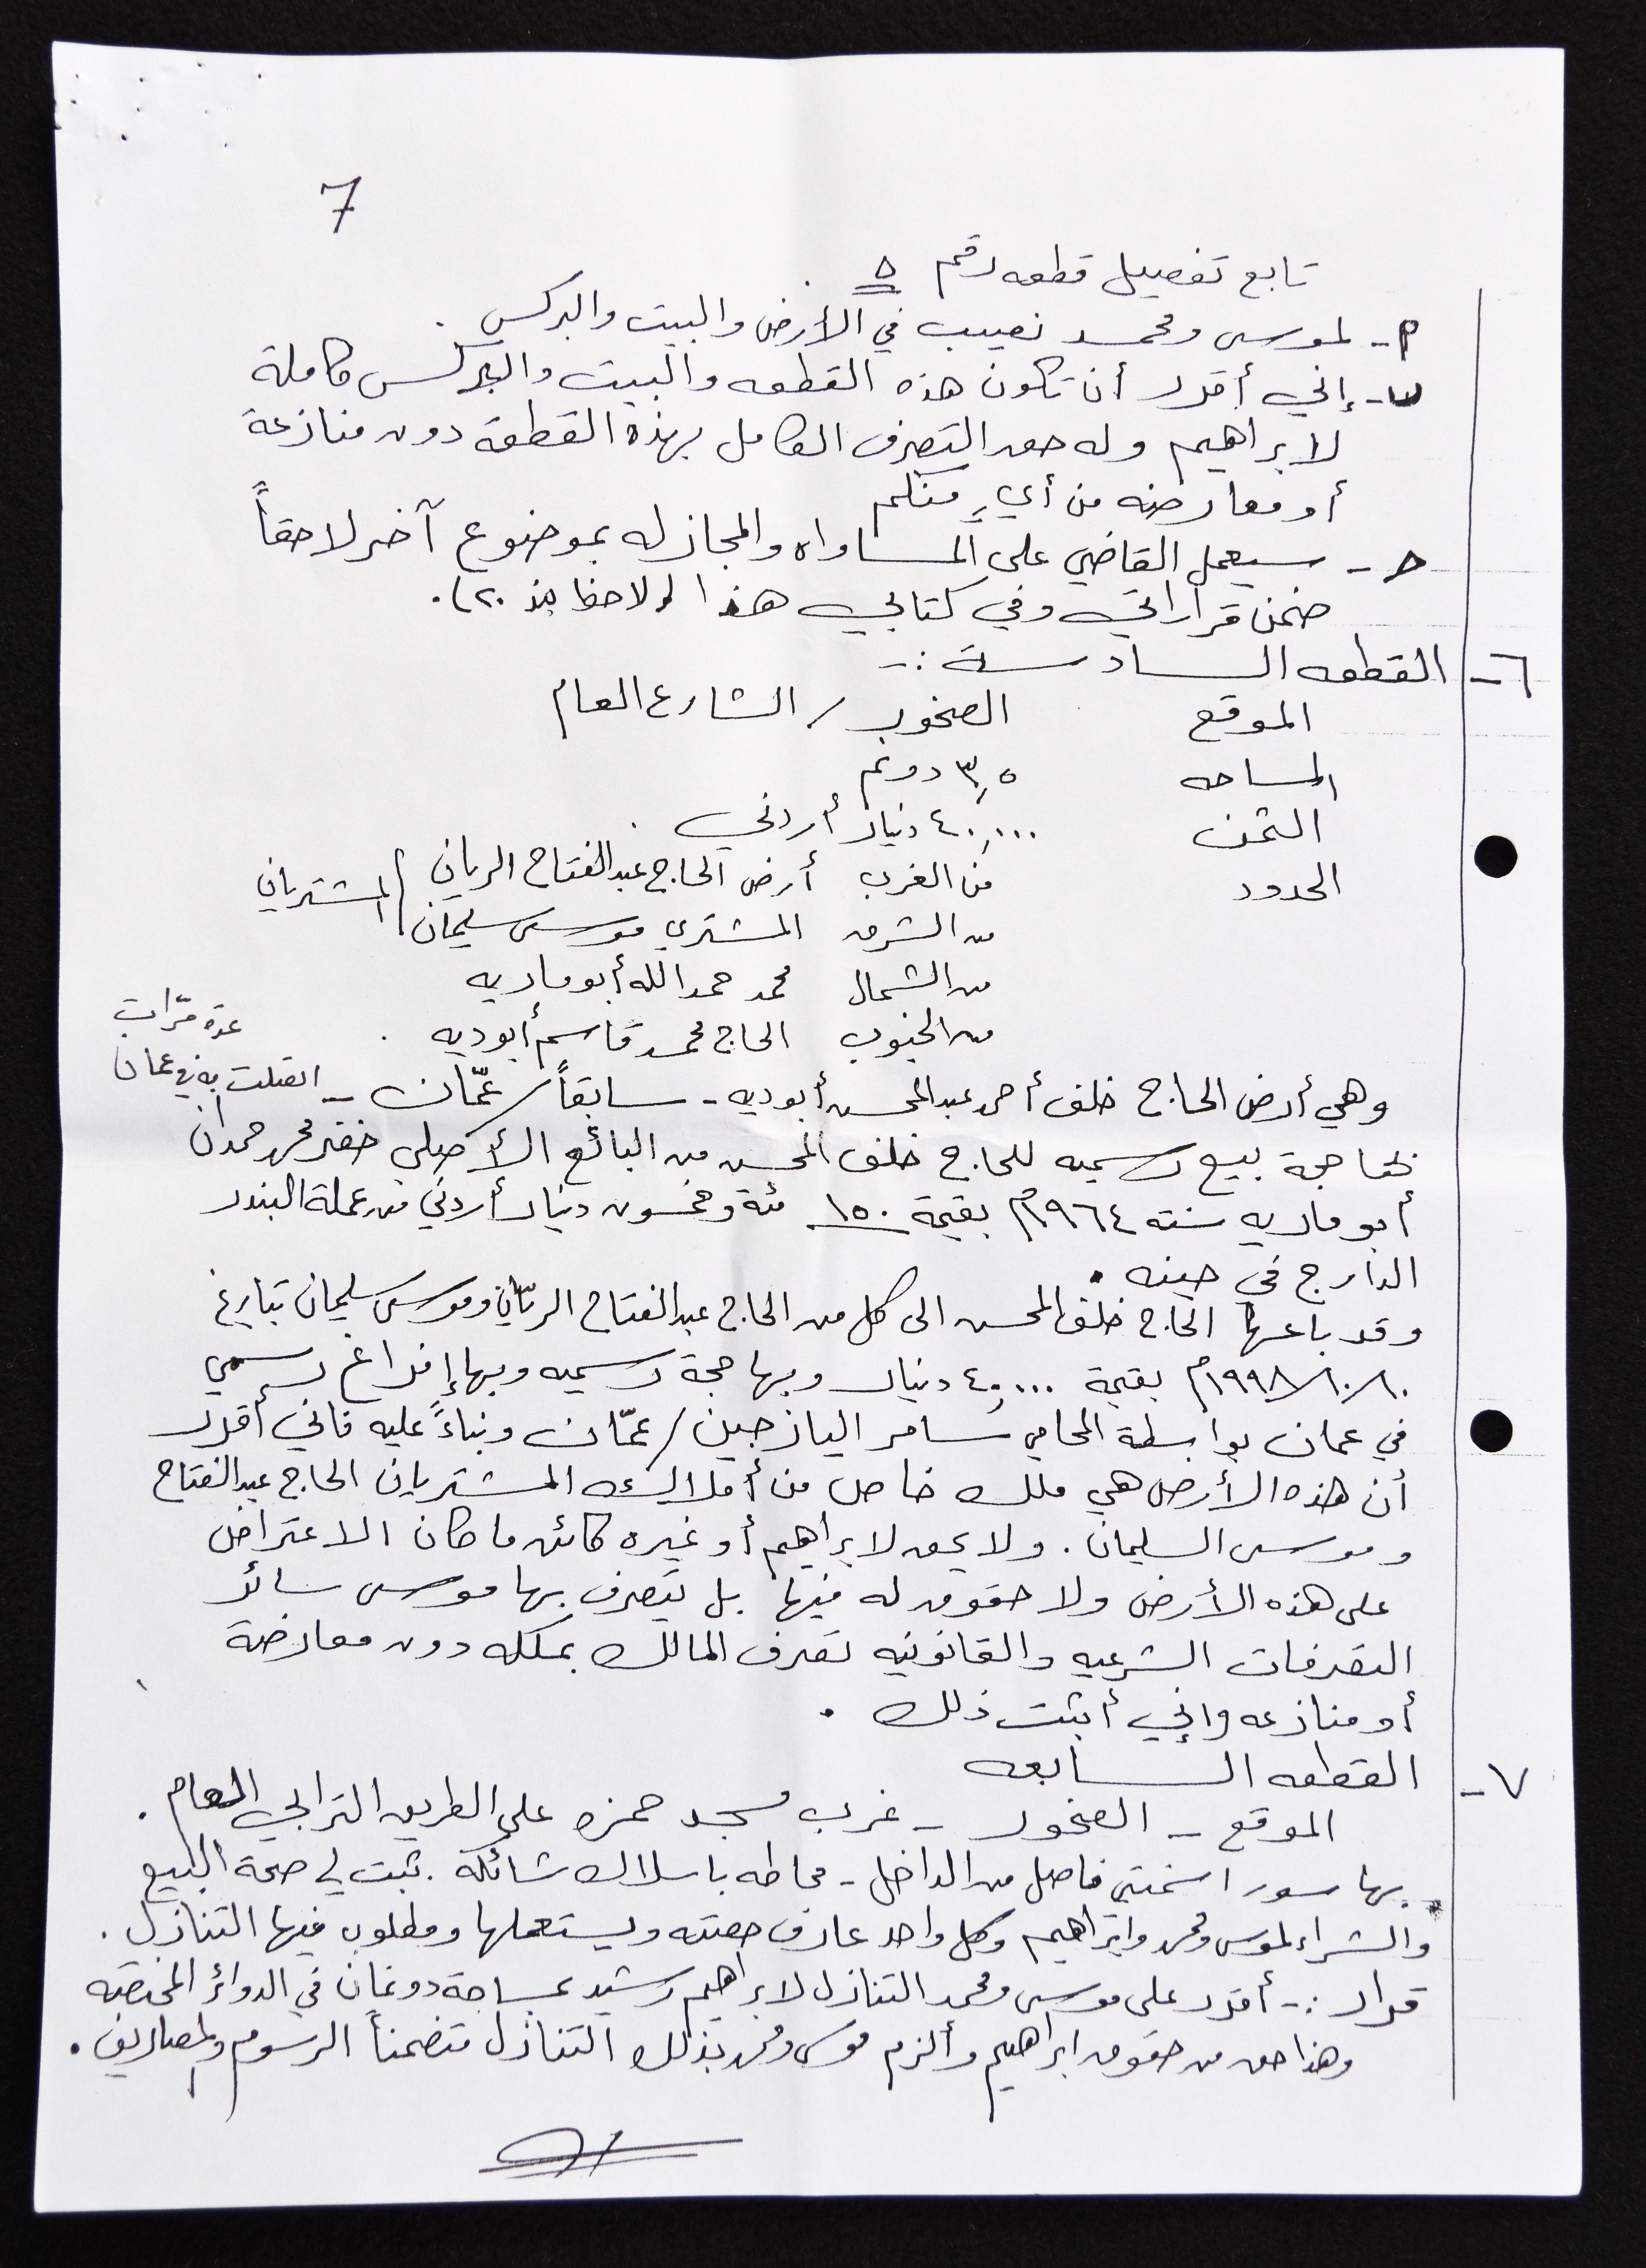 7
تابع تفصيل قطعه رقم ٥
أ- لموسى ومحمد نصيب في الأرض والبيت والبركس .
ب- إني أقرر أن تكون هذه القطعه والبيت والبركس كاملة
لابراهيم وله حق التصرف الكامل بهذه القطعة دون منازعة
أو معارضه من أيٍ منكم
ج - سيعمل القاضي على المساواه والمجازله بموضوع آخر لاحقاً
ضمن قراراتي وفي كتابي هذا (لاحظ بند ٢٠).
٦- القطعه السادسة :-
الموقع الصخور / الشارع العام
المساحه ٣,٥ دونم
الثمن ٤٠,٠٠٠ دينار أردني .
الحدود من الغرب أرض الحاج عبدالفتاح الرياني / المشتريان
من الشرق المشتري موسى سليمان
من الشمال محمد حمدالله أبو ماريه
من الجنوب الحاج محمد قاسم أبوديه .
وهي أرض الحاج خلف أحمد عبدالمحسن أبوديه - سابقاً / عمّان - اتصلت به في عمان عدة مرّات
حجة بيع رسميه للحاج خلف المحسن من البائع الأصلي خضر محمد حمدان
أبو ماريه سنة ١٩٦٤م بقيمة ١٥٠ مئة وخمسون دينار أردني من عملة البندر
الدارج في حينه .
وقد باعها الحاج خلف المحسن الى كل من الحاج عبدالفتاح الريّاني وموسى سليمان بتاريخ
١٩٩٨/١٠/١٠م بقيمة ٤٠,٠٠٠ دينار وبها حجة رسميه وبها إفراغ رسمي
في عمان بواسطة المحامي سامر اليازجين / عمّان وبناءً عليه فاني أقرر
أن هذه الأرض هي ملك خاص من أملاك المشتريان الحاج عبدالفتاح
وموسى السليمان . ولا يحق لابراهيم أو غيره كائن ما كان الاعتراض
على هذه الأرض ولا حقوق له فيها بل يتصرف بها موسى سائر
التصرفات الشرعيه والقانونيه تصرف المالك بملكه دون معارضة
أو منازعه وإني أثبت ذلك .
٧- القطعه السابعه
الموقع - الصخور - غرب مسجد حمزه على الطريق الترابي العام .
بها سور اسمنتي فاصل من الداخل - محاطه باسلاك شائكة . ثبت لي صحة البيع
والشراء لموسى ومحمد وابراهيم وكل واحد عارف حصته ويستعملها ومطلوب فيها التنازل .
قرار :- أقرر على موسى ومحمد التنازل لابراهيم رشيد بمساحة دونمان في الدوائر المختصه
وهذا حق من حقوق ابراهيم وألزم موسى ومحمد بذلك التنازل متضمناً الرسوم والمصاريف .